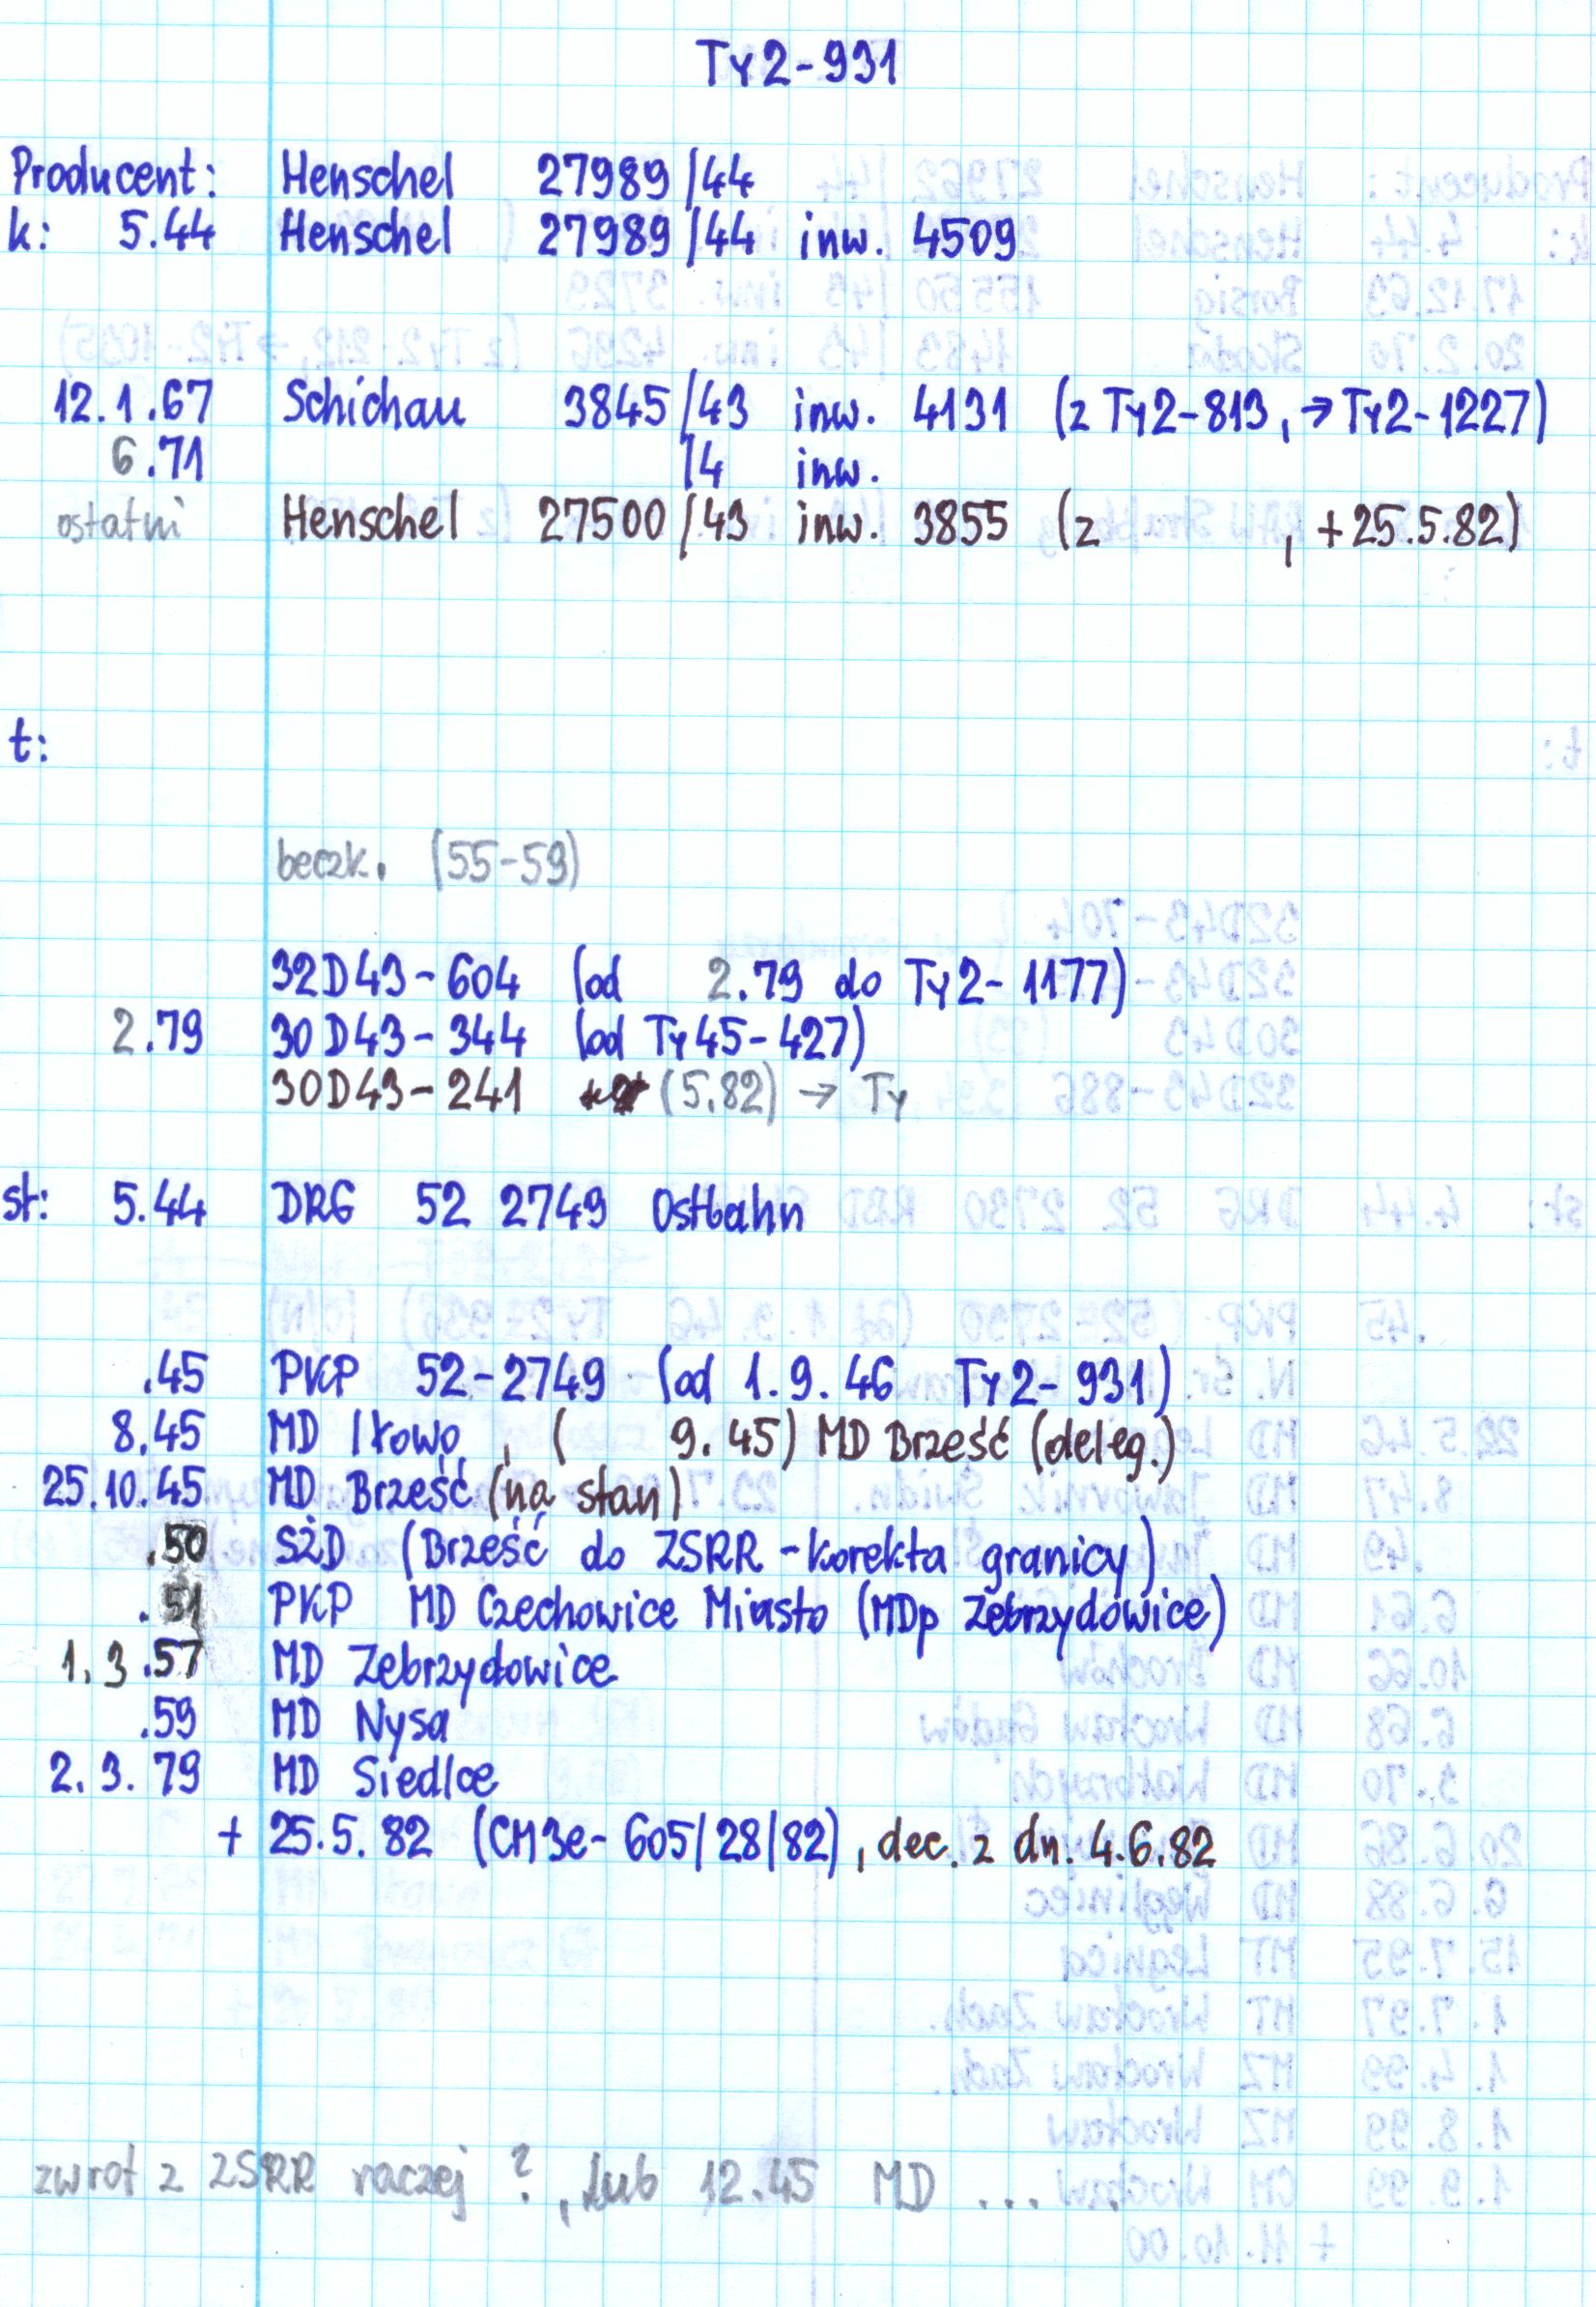 Ty2-931
Producent: Henschel 27989/44
k: 5.44 Henschel 27989/44 inw. 4509
12.1.67 Schichau 3845/43 inw. 4131 (z Ty2-813, → Ty2-1227)
6.71 /4 inw.
ostatni Henschel 27500/43 inw. 3855 (z , +25.5.82)
t:
beczk. (55-59)
32D43-604 (od 2.79 do Ty2-1177)
2.79 30D43-344 (od Ty45-427)
30D43-241 (5.82) → Ty
st: 5.44 DRG 52 2749 Ostbahn
.45 PKP 52-2749 (od 1.9.46 Ty2-931)
8.45 MD Iłowo, ( 9.45) MD Brześć (deleg.)
25.10.45 MD Brześć (na stan)
.50 SŻD (Brześć do ZSRR - korekta granicy)
.51 PKP MD Czechowice Miasto (MDp Zebrzydowice)
1.3.57 MD Zebrzydowice
.59 MD Nysa
2.3.79 MD Siedlce
+ 25.5.82 (CM3e-605/28/82), dec. z dn. 4.6.82
zwrot z ZSRR raczej ?, lub 12.45 MD ...